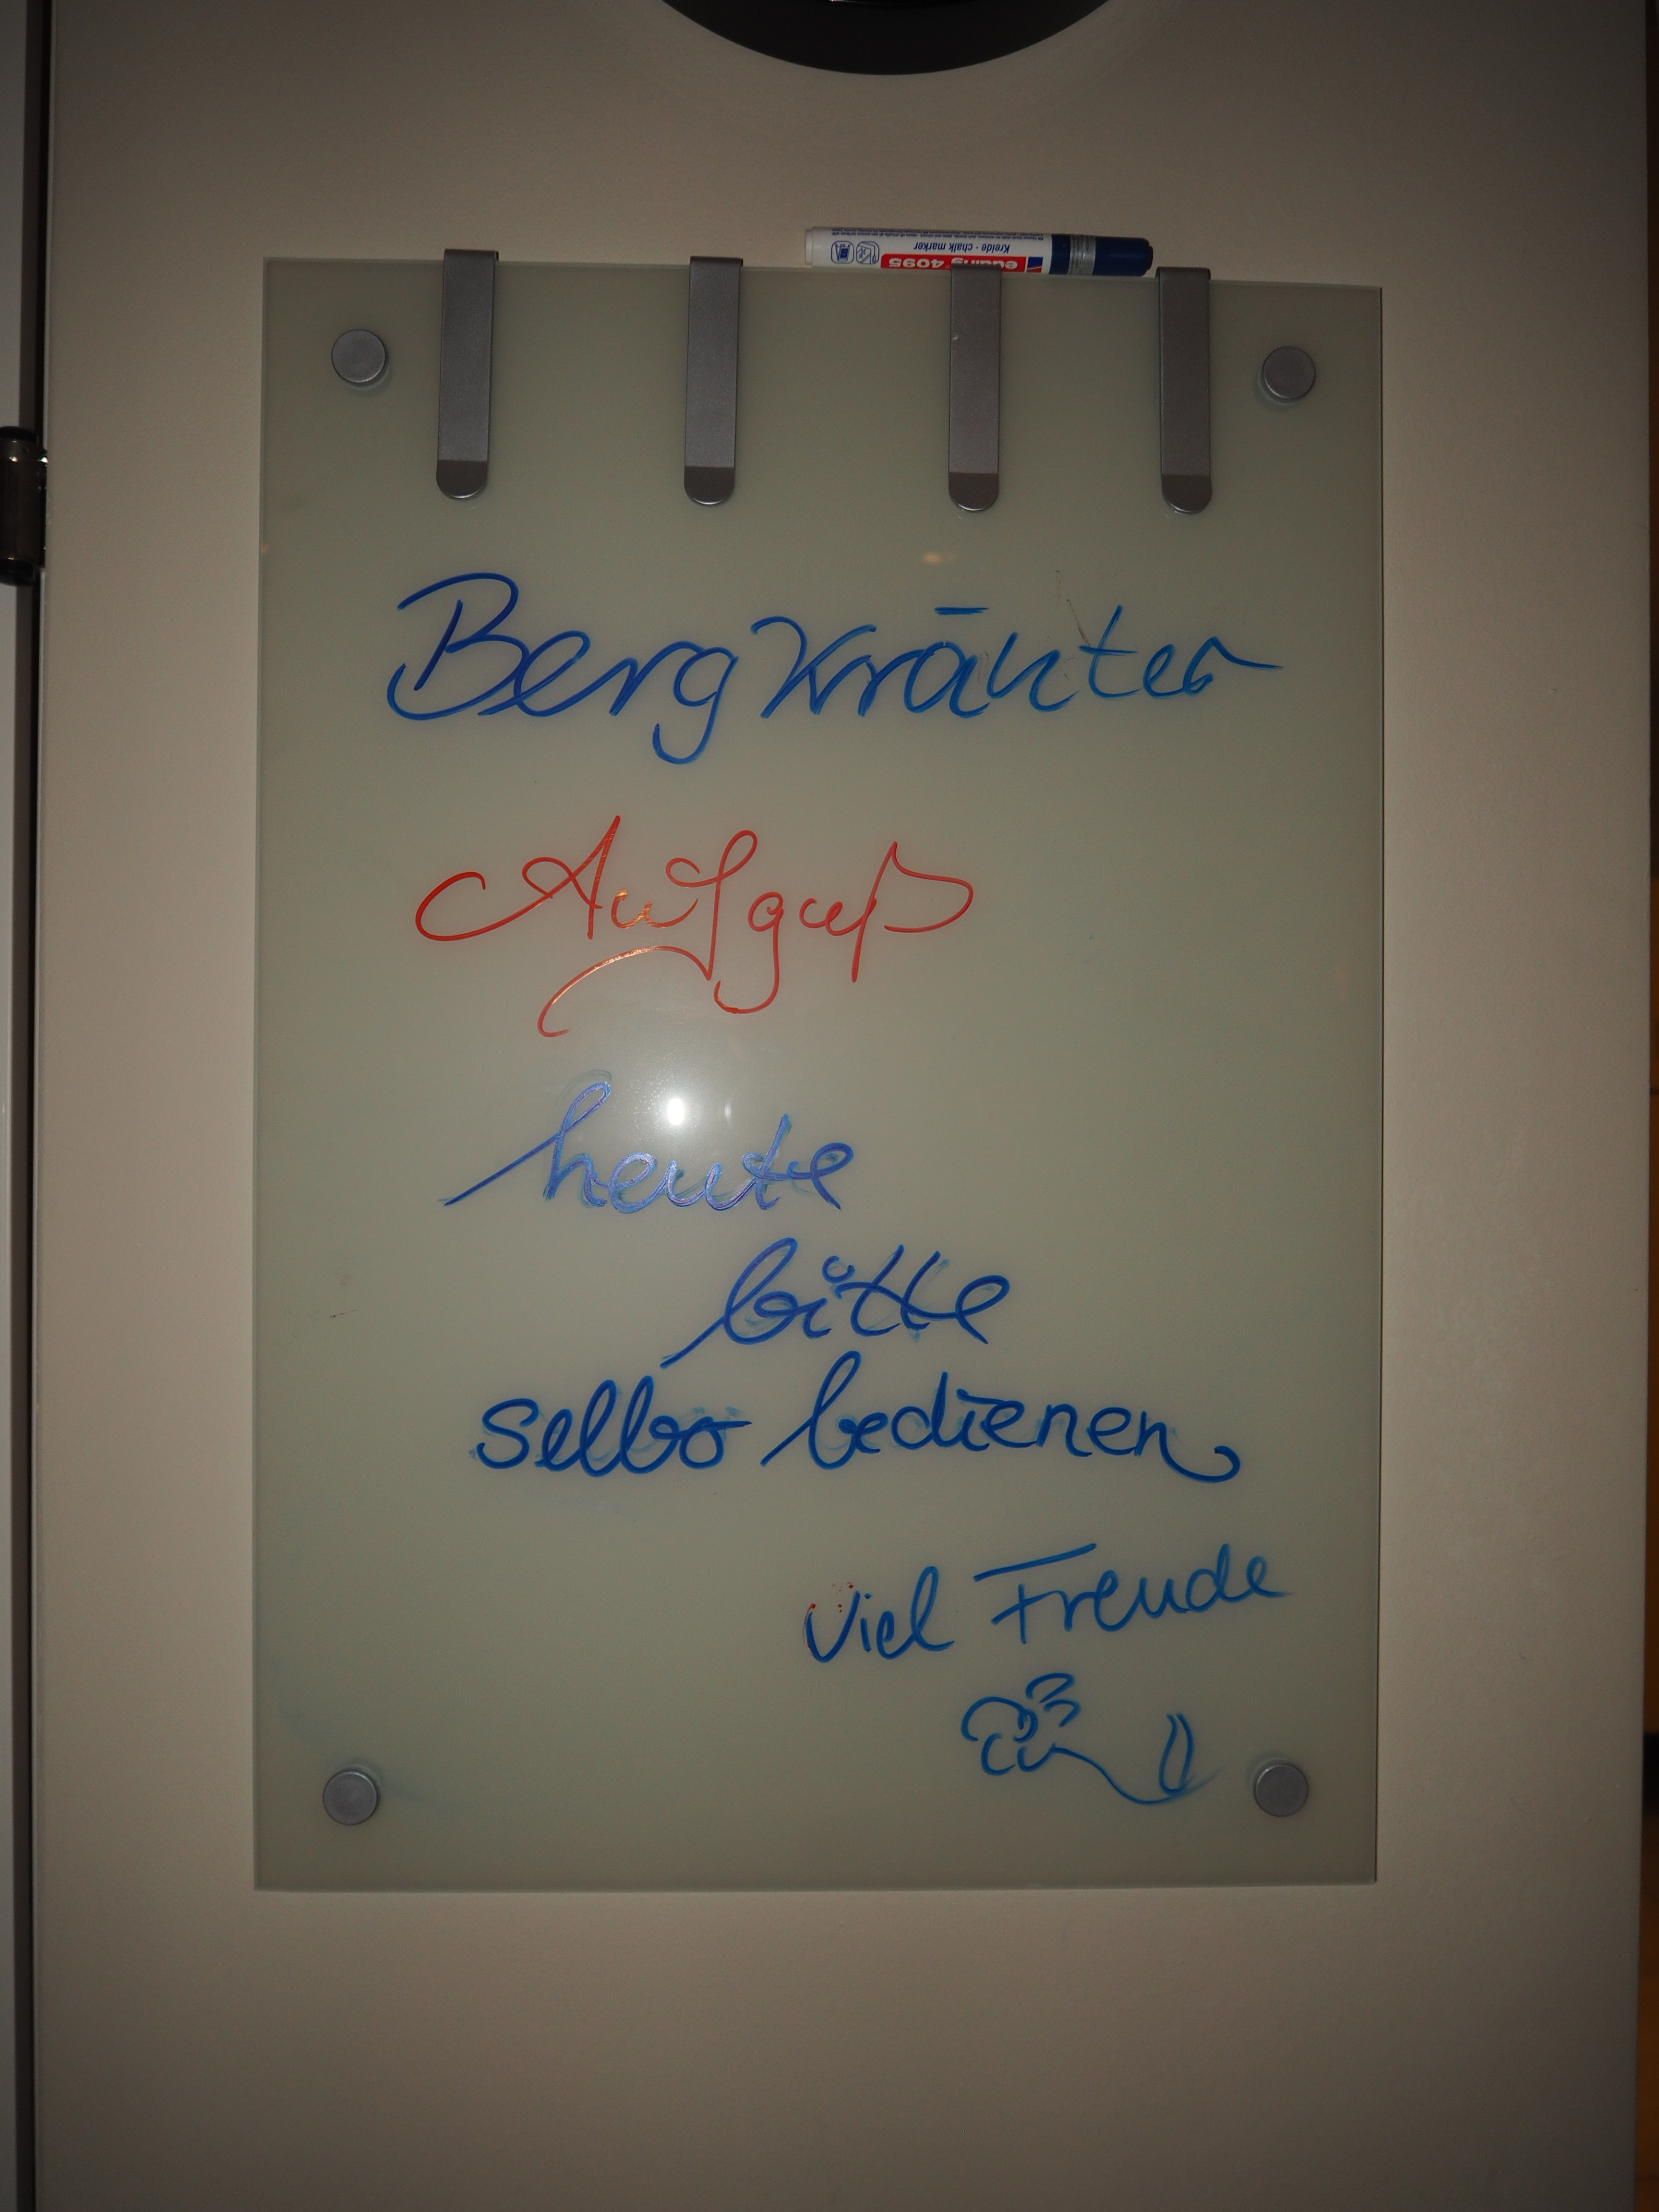 edding 4095
Kreide - chalk marker
Bergkräuter
Aufguß
heute
bitte
selbst bedienen
Viel Freude